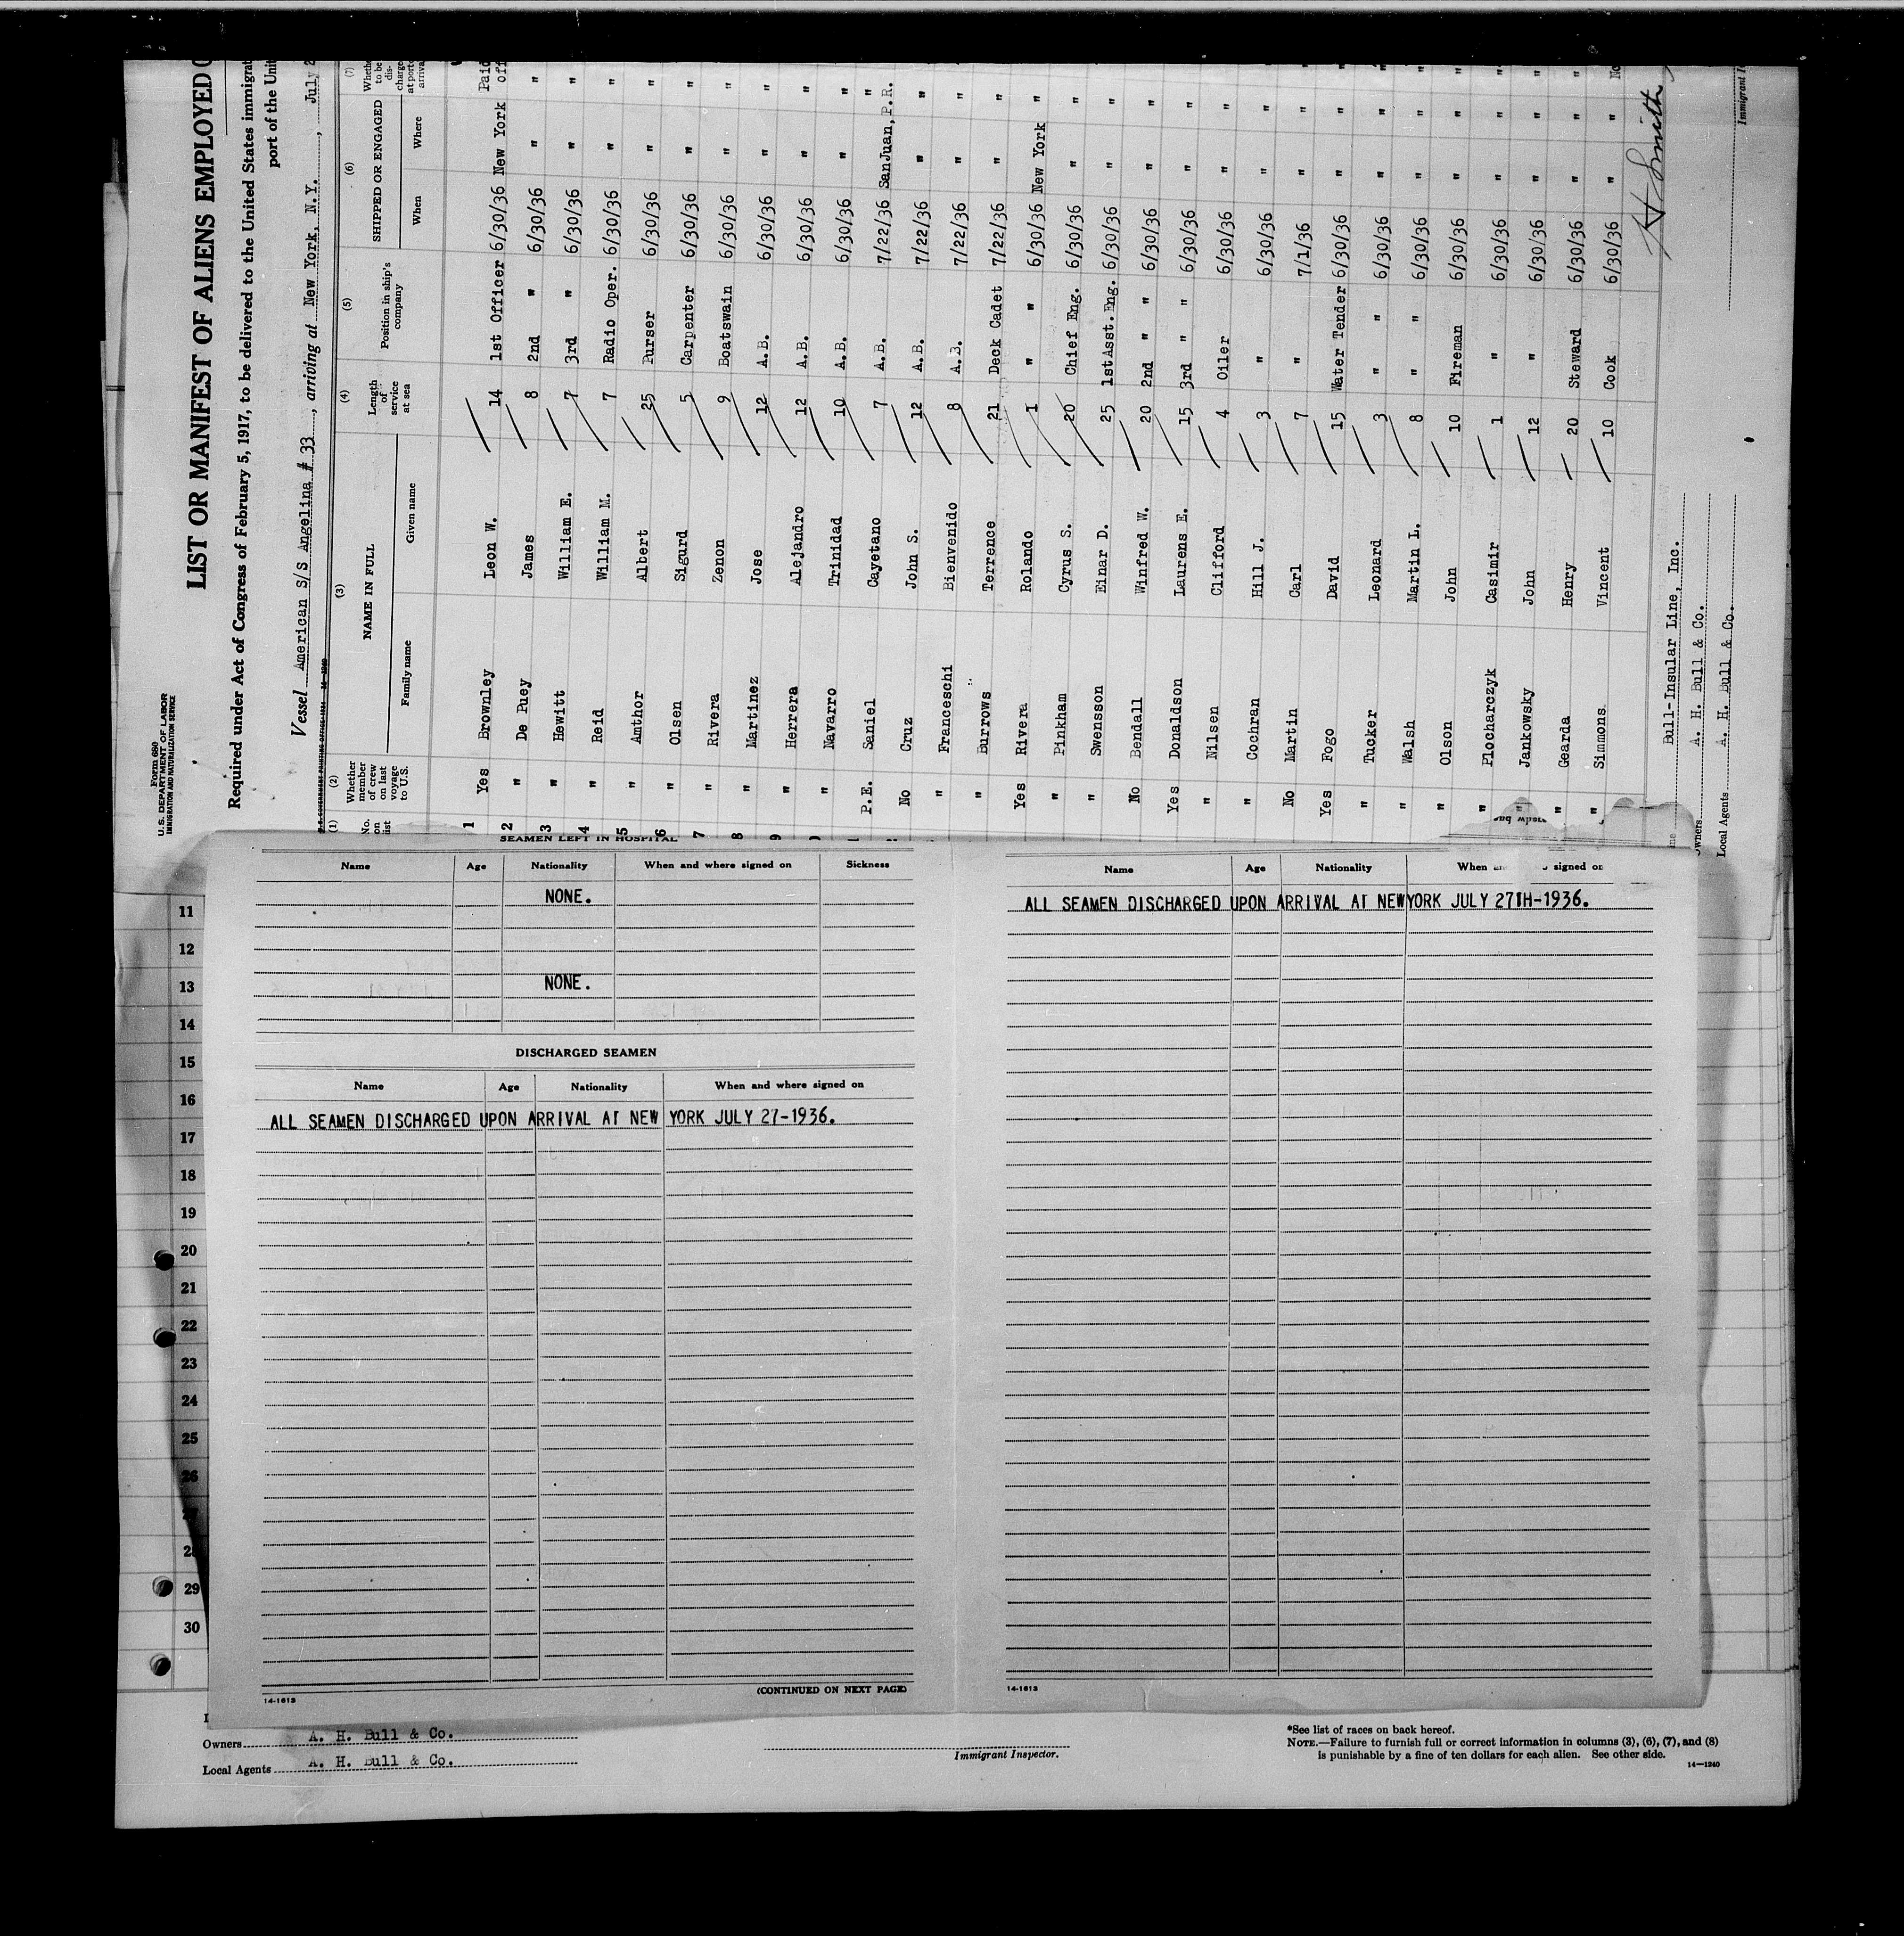 Form 680
U. S. DEPARTMENT OF LABOR
IMMIGRATION AND NATURALIZATION SERVICE
LIST OR MANIFEST OF ALIENS EMPLOYED
Required under Act of Congress of February 5, 1917, to be delivered to the United States immigrat
port of the Unit
Vessel American S/S Angelina # 33, arriving at New York, N.Y., July 2
(1) (2) (3) (4) (5) (6) (7)
No. on list Whether member of crew on last voyage to U.S. NAME IN FULL Family name Given name Length of service at sea Position in ship's company SHIPPED OR ENGAGED When Where Whethe to be dis- charge at port arrival
1 Yes Brownley Leon W. 14 1st Officer 6/30/36 New York Paid Off
2 " De Puey James 8 2nd " 6/30/36 " "
3 " Hewitt William E. 7 3rd " 6/30/36 " "
4 " Reid William M. 7 Radio Oper. 6/30/36 " "
5 " Amthor Albert 25 Purser 6/30/36 " "
6 " Olsen Sigurd 5 Carpenter 6/30/36 " "
7 " Rivera Zenon 9 Boatswain 6/30/36 " "
8 " Martinez Jose 12 A.B. 6/30/36 " "
9 " Herrera Alejandro 12 A.B. 6/30/36 " "
" Navarro Trinidad 10 A.B. 6/30/36 " "
P.E. Saniel Cayetano 7 A.B. 7/22/36 SanJuan, P.R. "
No Cruz John S. 12 A.B. 7/22/36 " "
" Franceschi Bienvenido 8 A.B. 7/22/36 " "
" Burrows Terrence 21 Deck Cadet 7/22/36 " "
Yes Rivera Rolando 1 " " 6/30/36 New York "
" Pinkham Cyrus S. 20 Chief Eng. 6/30/36 " "
" Swensson Einar D. 25 1stAsst.Eng. 6/30/36 " "
No Bendall Winfred W. 20 2nd " " 6/30/36 " "
Yes Donaldson Laurens E. 15 3rd " " 6/30/36 " "
" Nilsen Clifford 4 Oiler 6/30/36 " "
" Cochran Hill J. 3 " 6/30/36 " "
No Martin Carl 7 " 7/1/36 " "
Yes Fogo David 15 Water Tender 6/30/36 " "
" Tucker Leonard 3 " " 6/30/36 " "
" Walsh Martin L. 8 " " 6/30/36 " "
" Olson John 10 Fireman 6/30/36 " "
" Plocharczyk Casimir 1 " 6/30/36 " "
" Jankowsky John 12 " 6/30/36 " "
" Gearda Henry 20 Steward 6/30/36 " "
" Simmons Vincent 10 Cook 6/30/36 " No
H Smith
Bull-Insular Line, Inc.
Owners A. H. Bull & Co.
Local Agents A. H. Bull & Co.
Immigrant I
SEAMEN LEFT IN HOSPITAL
Name Age Nationality When and where signed on Sickness
NONE.
NONE.
DISCHARGED SEAMEN
Name Age Nationality When and where signed on
ALL SEAMEN DISCHARGED UPON ARRIVAL AT NEW YORK JULY 27-1936.
(CONTINUED ON NEXT PAGE)
14-1613
Name Age Nationality When signed on
ALL SEAMEN DISCHARGED UPON ARRIVAL AT NEWYORK JULY 27TH-1936.
14-1613
11
12
13
14
15
16
17
18
19
20
21
22
23
24
25
26
28
29
30
Owners A. H. Bull & Co.
Local Agents A. H. Bull & Co.
Immigrant Inspector.
*See list of races on back hereof.
NOTE.—Failure to furnish full or correct information in columns (3), (6), (7), and (8)
is punishable by a fine of ten dollars for each alien. See other side.
14—1240